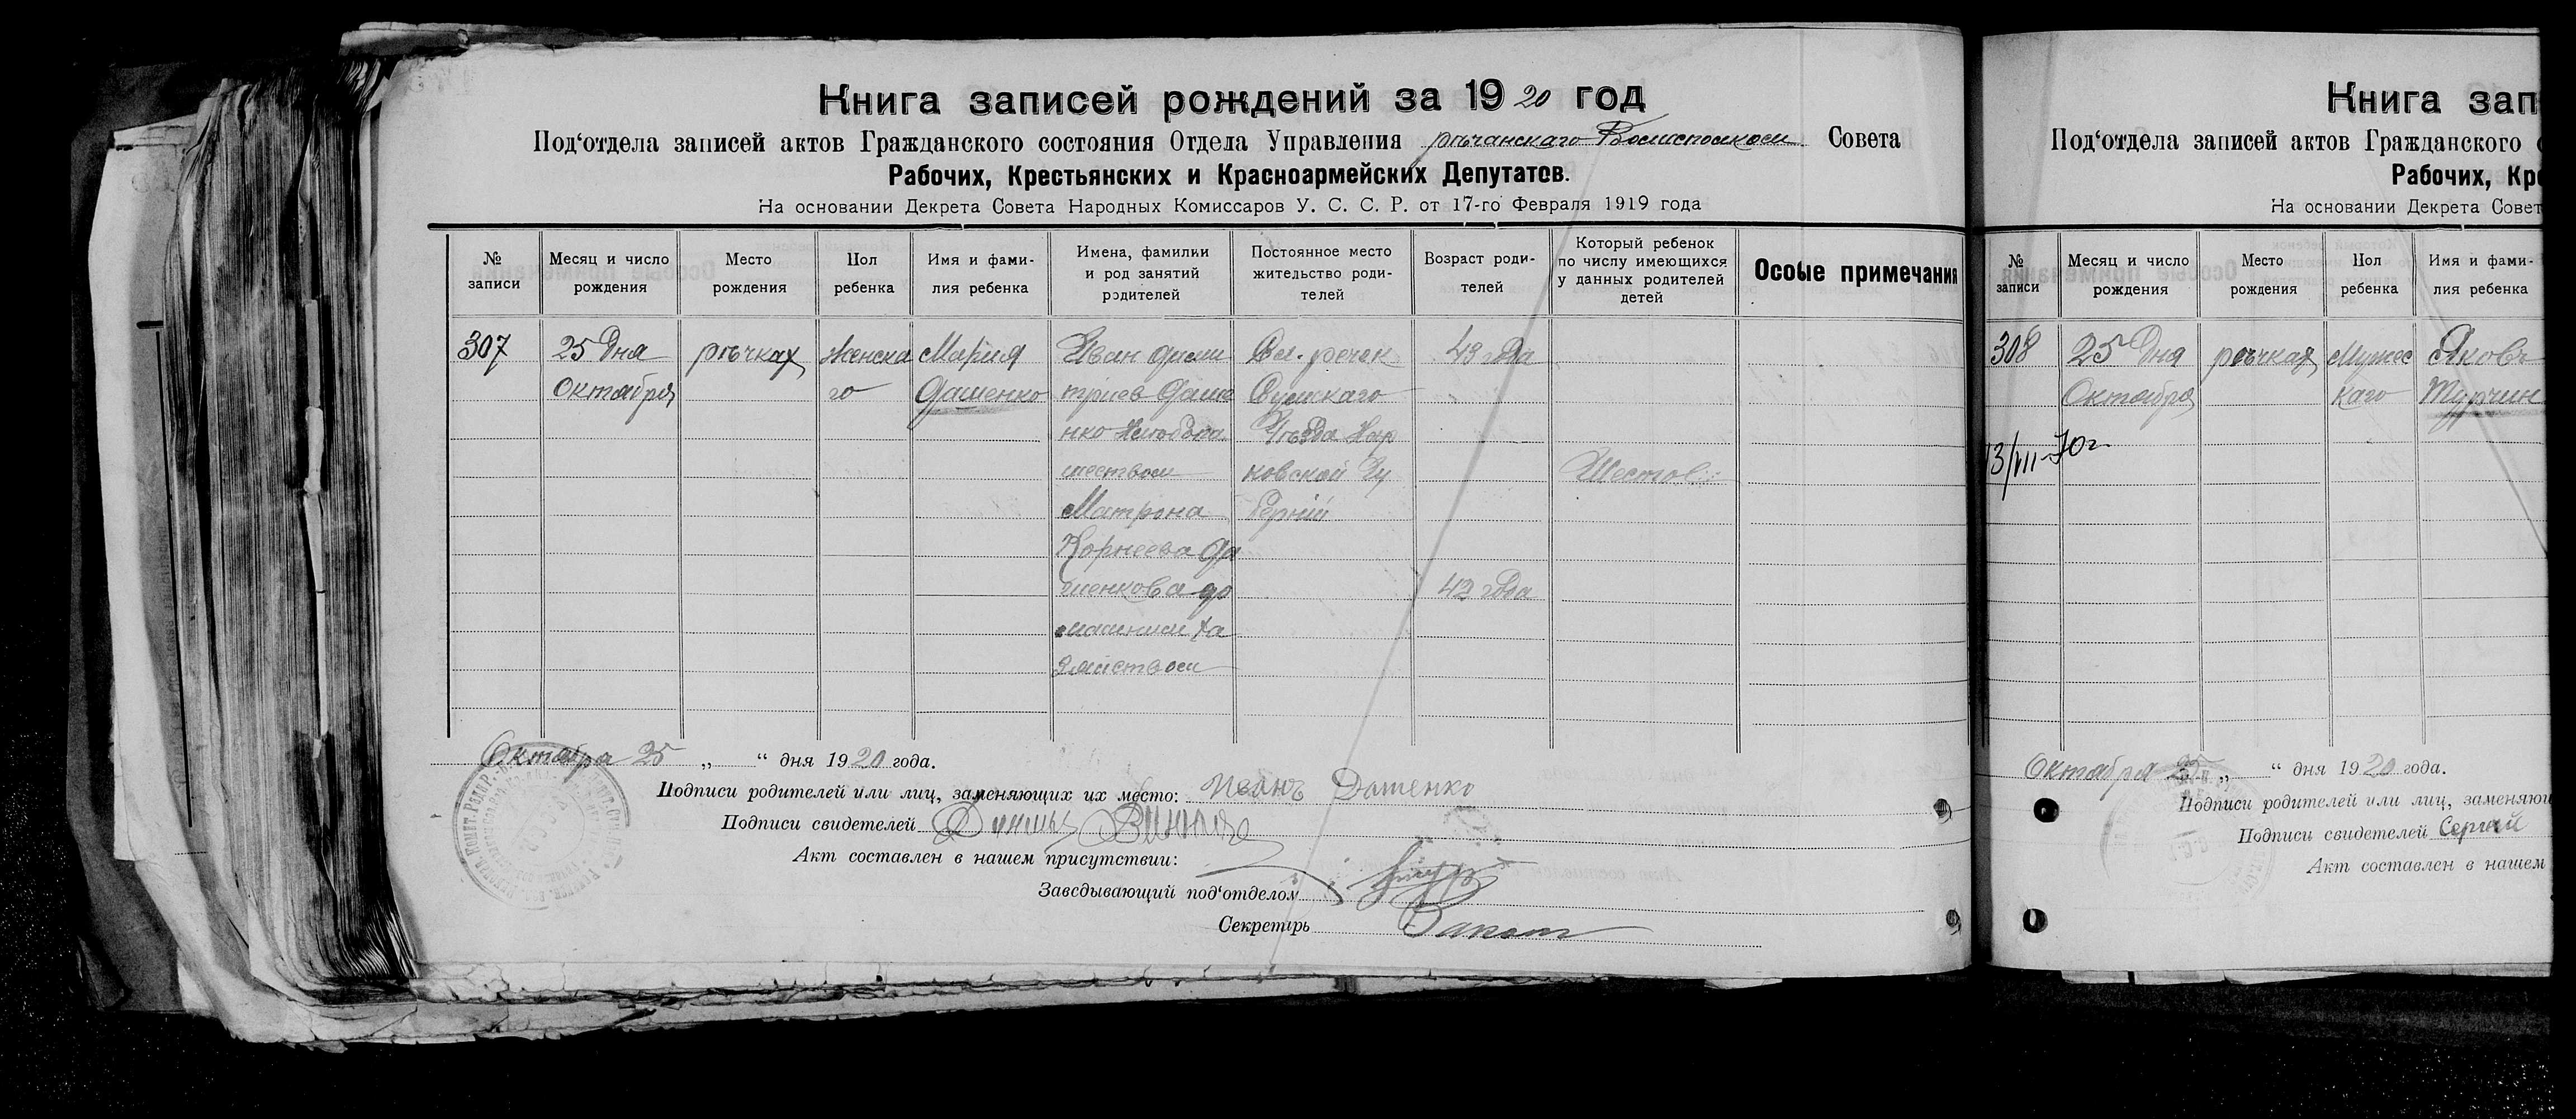 Книга записей рождений за 1920 год
Под‘отдела записей актов Гражданского состояния Отдела Управления рѣчанскаго Волисполкома Совета
Рабочих, Крестьянских и Красноармейских Депутатов.
На основании Декрета Совета Народных Комиссаров У. С. С. Р. от 17-го Февраля 1919 года
№ записи
Месяц и число рождения
Место рождения
Пол ребенка
Имя и фами-
лия ребенка
Имена, фамилии
и род занятий
родителей
Постоянное место
жительство роди-
телей
Возраст роди-
телей
Который ребенок
по числу имеющихся
у данных родителей
детей
Особые примечания
307
25 Дня
Октября
рѣчках
Женска
го
Мария
Дашенко
Иван Дими
триев Даше
нко Хлебопа
шеством
Матрона
Корнеева Да
шенкова до
машним ха
зяйством
Сел. речек
Сумскаго
Уѣзда Хар
ковской Гу
берніи
43 года
42 года
Шестов
Октября 25 „ “ дня 1920 года.
Подписи родителей или лиц, заменяющих их место: Иванъ Дашенко
Подписи свидетелей
Акт составлен в нашем присутствии:
Заведывающий под‘отделом
Секретарь
Книга зап
Под‘отдела записей актов Гражданского с
Рабочих, Кре
На основании Декрета Совет
№ записи
Месяц и число рождения
Место рождения
Пол ребенка
Имя и фами-
лия ребенка
308
25 Дня
Октября
рѣчках
Мужес
каго
Яковъ
Турчин
13/VII-70г
Октября 25 „ “ дня 1920 года.
Подписи родителей или лиц, заменяю
Подписи свидетелей Сергей
Акт составлен в нашем